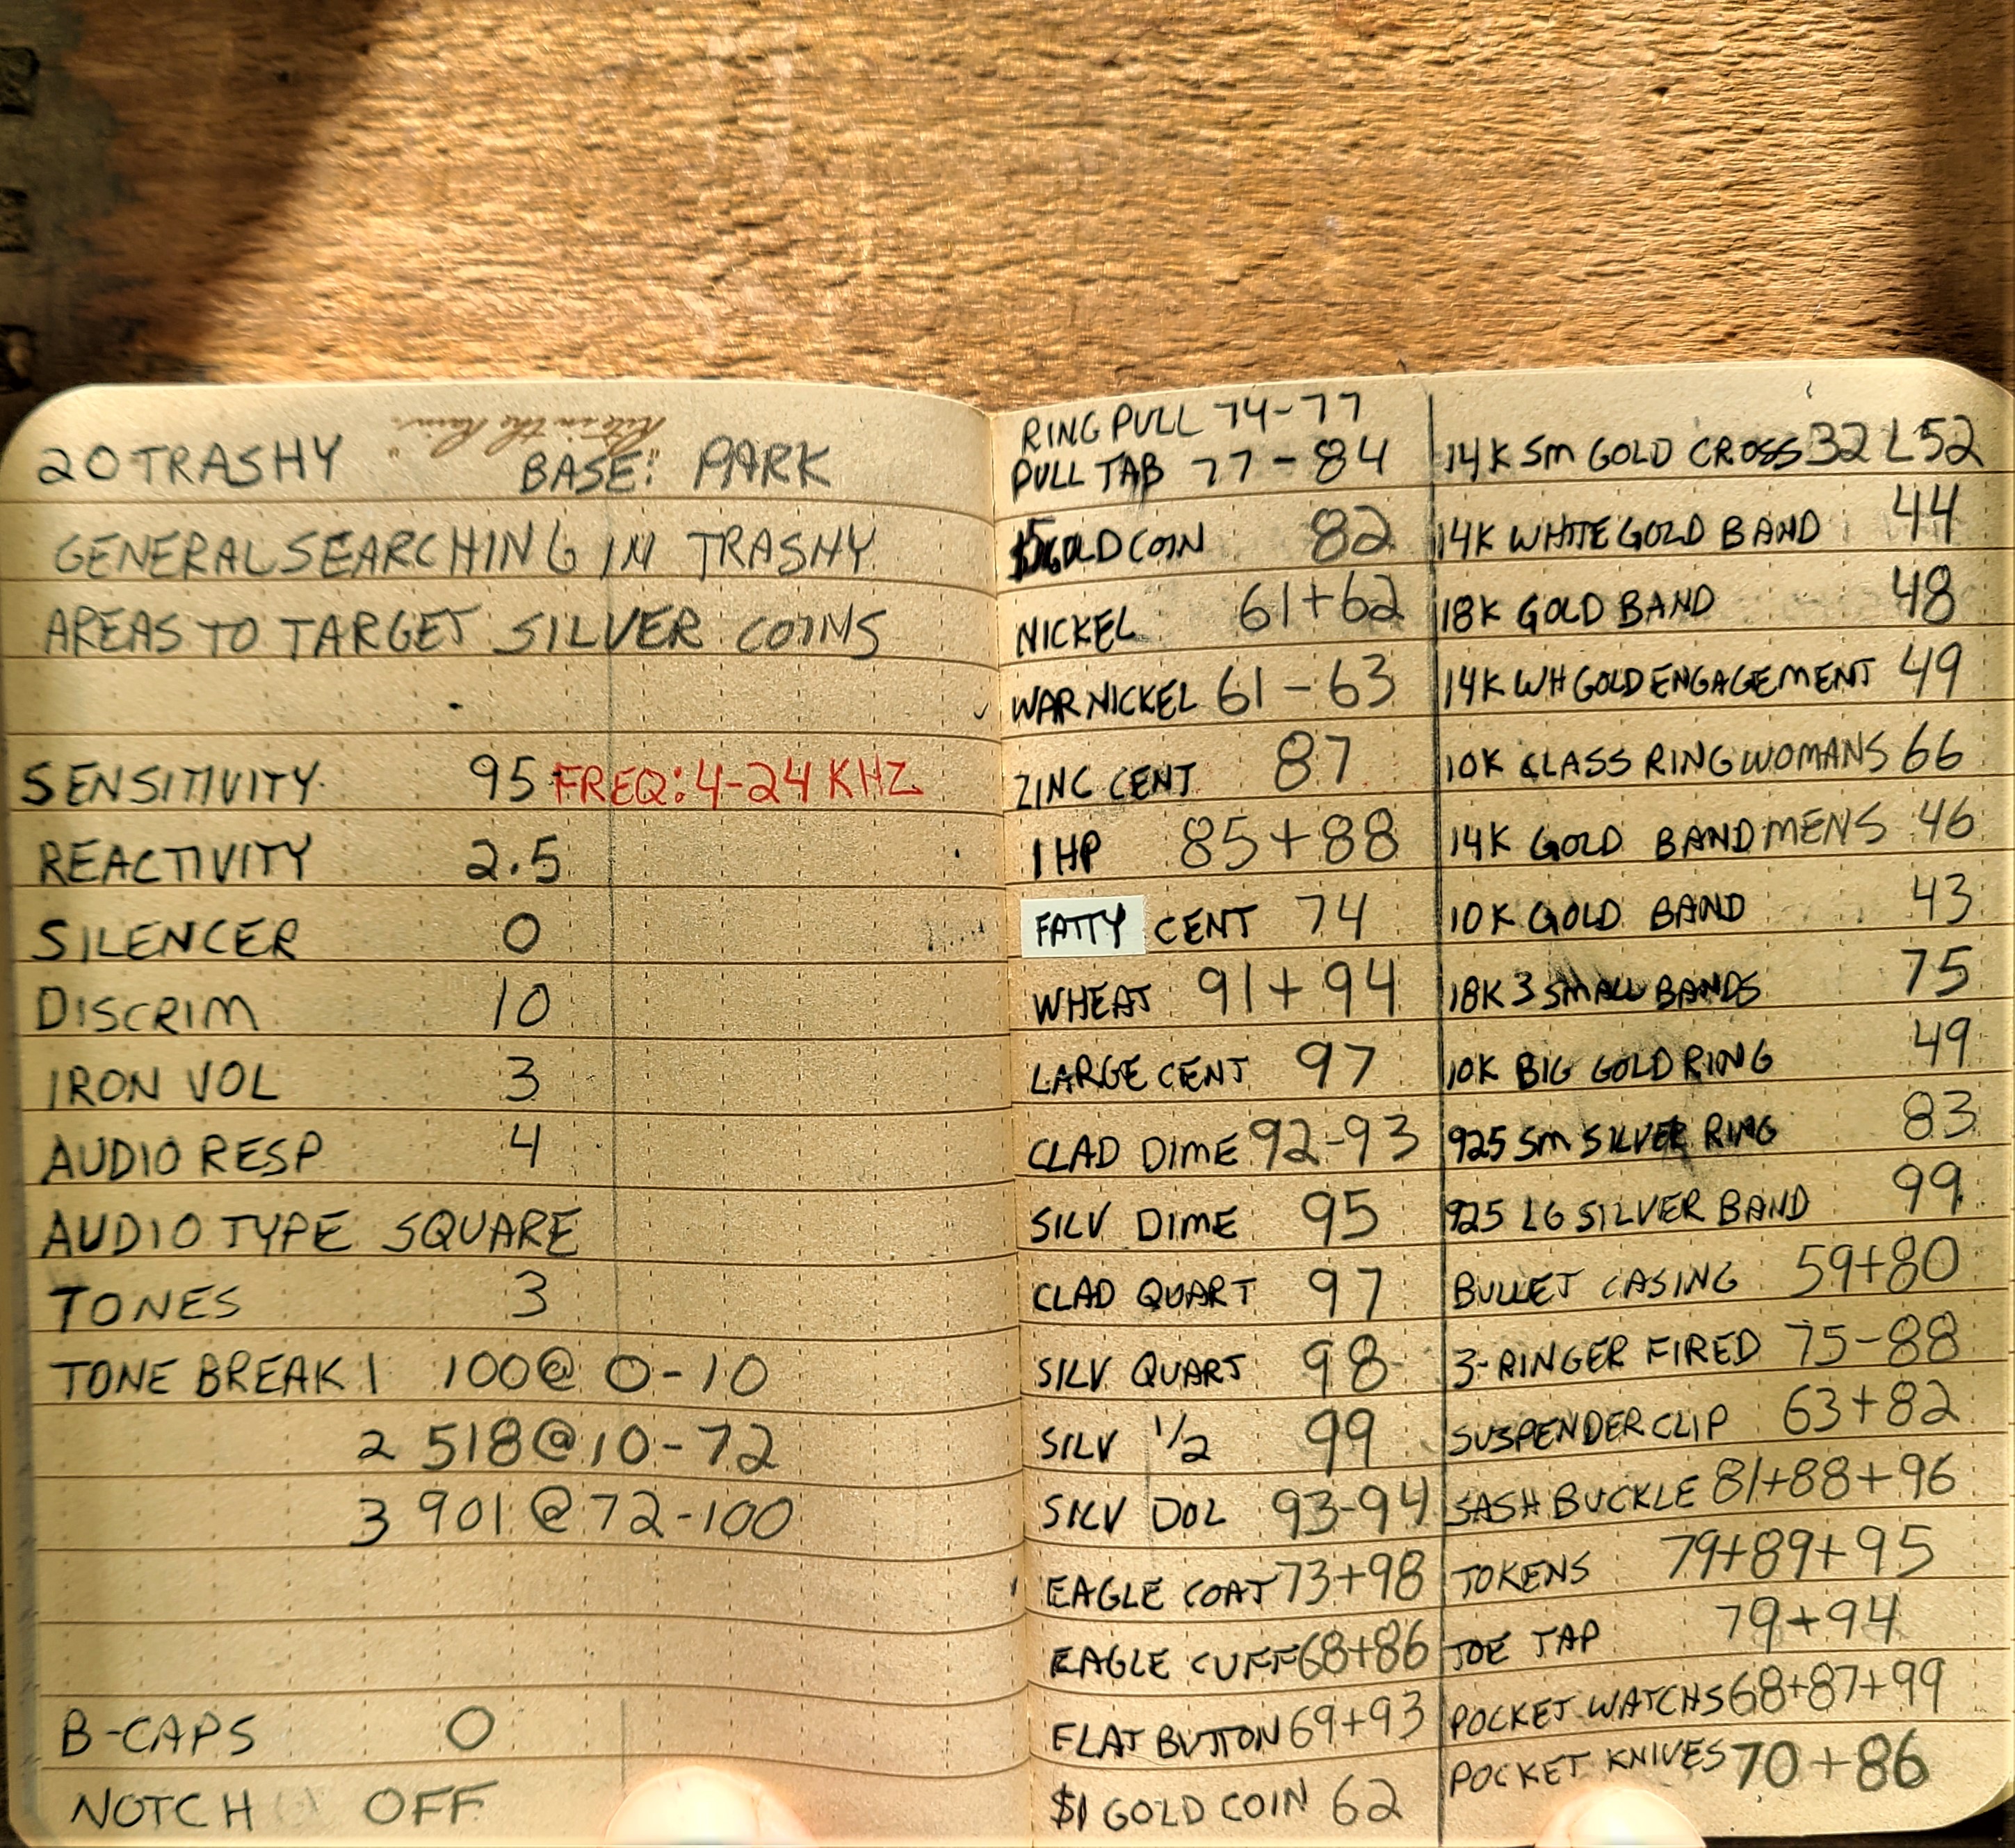 "Rite in the Rain"
20 TRASHY BASE: PARK
GENERAL SEARCHING IN TRASHY
AREAS TO TARGET SILVER COINS
SENSITIVITY 95 FREQ: 4-24 KHZ
REACTIVITY 2.5
SILENCER 0
DISCRIM 10
IRON VOL 3
AUDIO RESP 4
AUDIO TYPE SQUARE
TONES 3
TONE BREAK 1 100@ 0-10
2 518@10-72
3 901@72-100
B-CAPS 0
NOTCH OFF
RING PULL 74-77
PULL TAB 77-84
$5 GOLD COIN 82
NICKEL 61+62
WAR NICKEL 61-63
ZINC CENT 87
IHP 85+88
FATTY CENT 74
WHEAT 91+94
LARGE CENT 97
CLAD DIME 92-93
SILV DIME 95
CLAD QUART 97
SILV QUART 98
SILV 1/2 99
SILV DOL 93-94
EAGLE COAT 73+98
EAGLE CUFF 68+86
FLAT BUTTON 69+93
$1 GOLD COIN 62
14K SM GOLD CROSS 32 L52
14K WHITE GOLD BAND 44
18K GOLD BAND 48
14K WH GOLD ENGAGEMENT 49
10K CLASS RING WOMANS 66
14K GOLD BAND MENS 46
10K GOLD BAND 43
18K 3 SMALL BANDS 75
10K BIG GOLD RING 49
925 SM SILVER RING 83
925 LG SILVER BAND 99
BULLET CASING 59+80
3-RINGER FIRED 75-88
SUSPENDER CLIP 63+82
SASH BUCKLE 81+88+96
TOKENS 79+89+95
JOE TAP 79+94
POCKET WATCHS 68+87+99
POCKET KNIVES 70+86